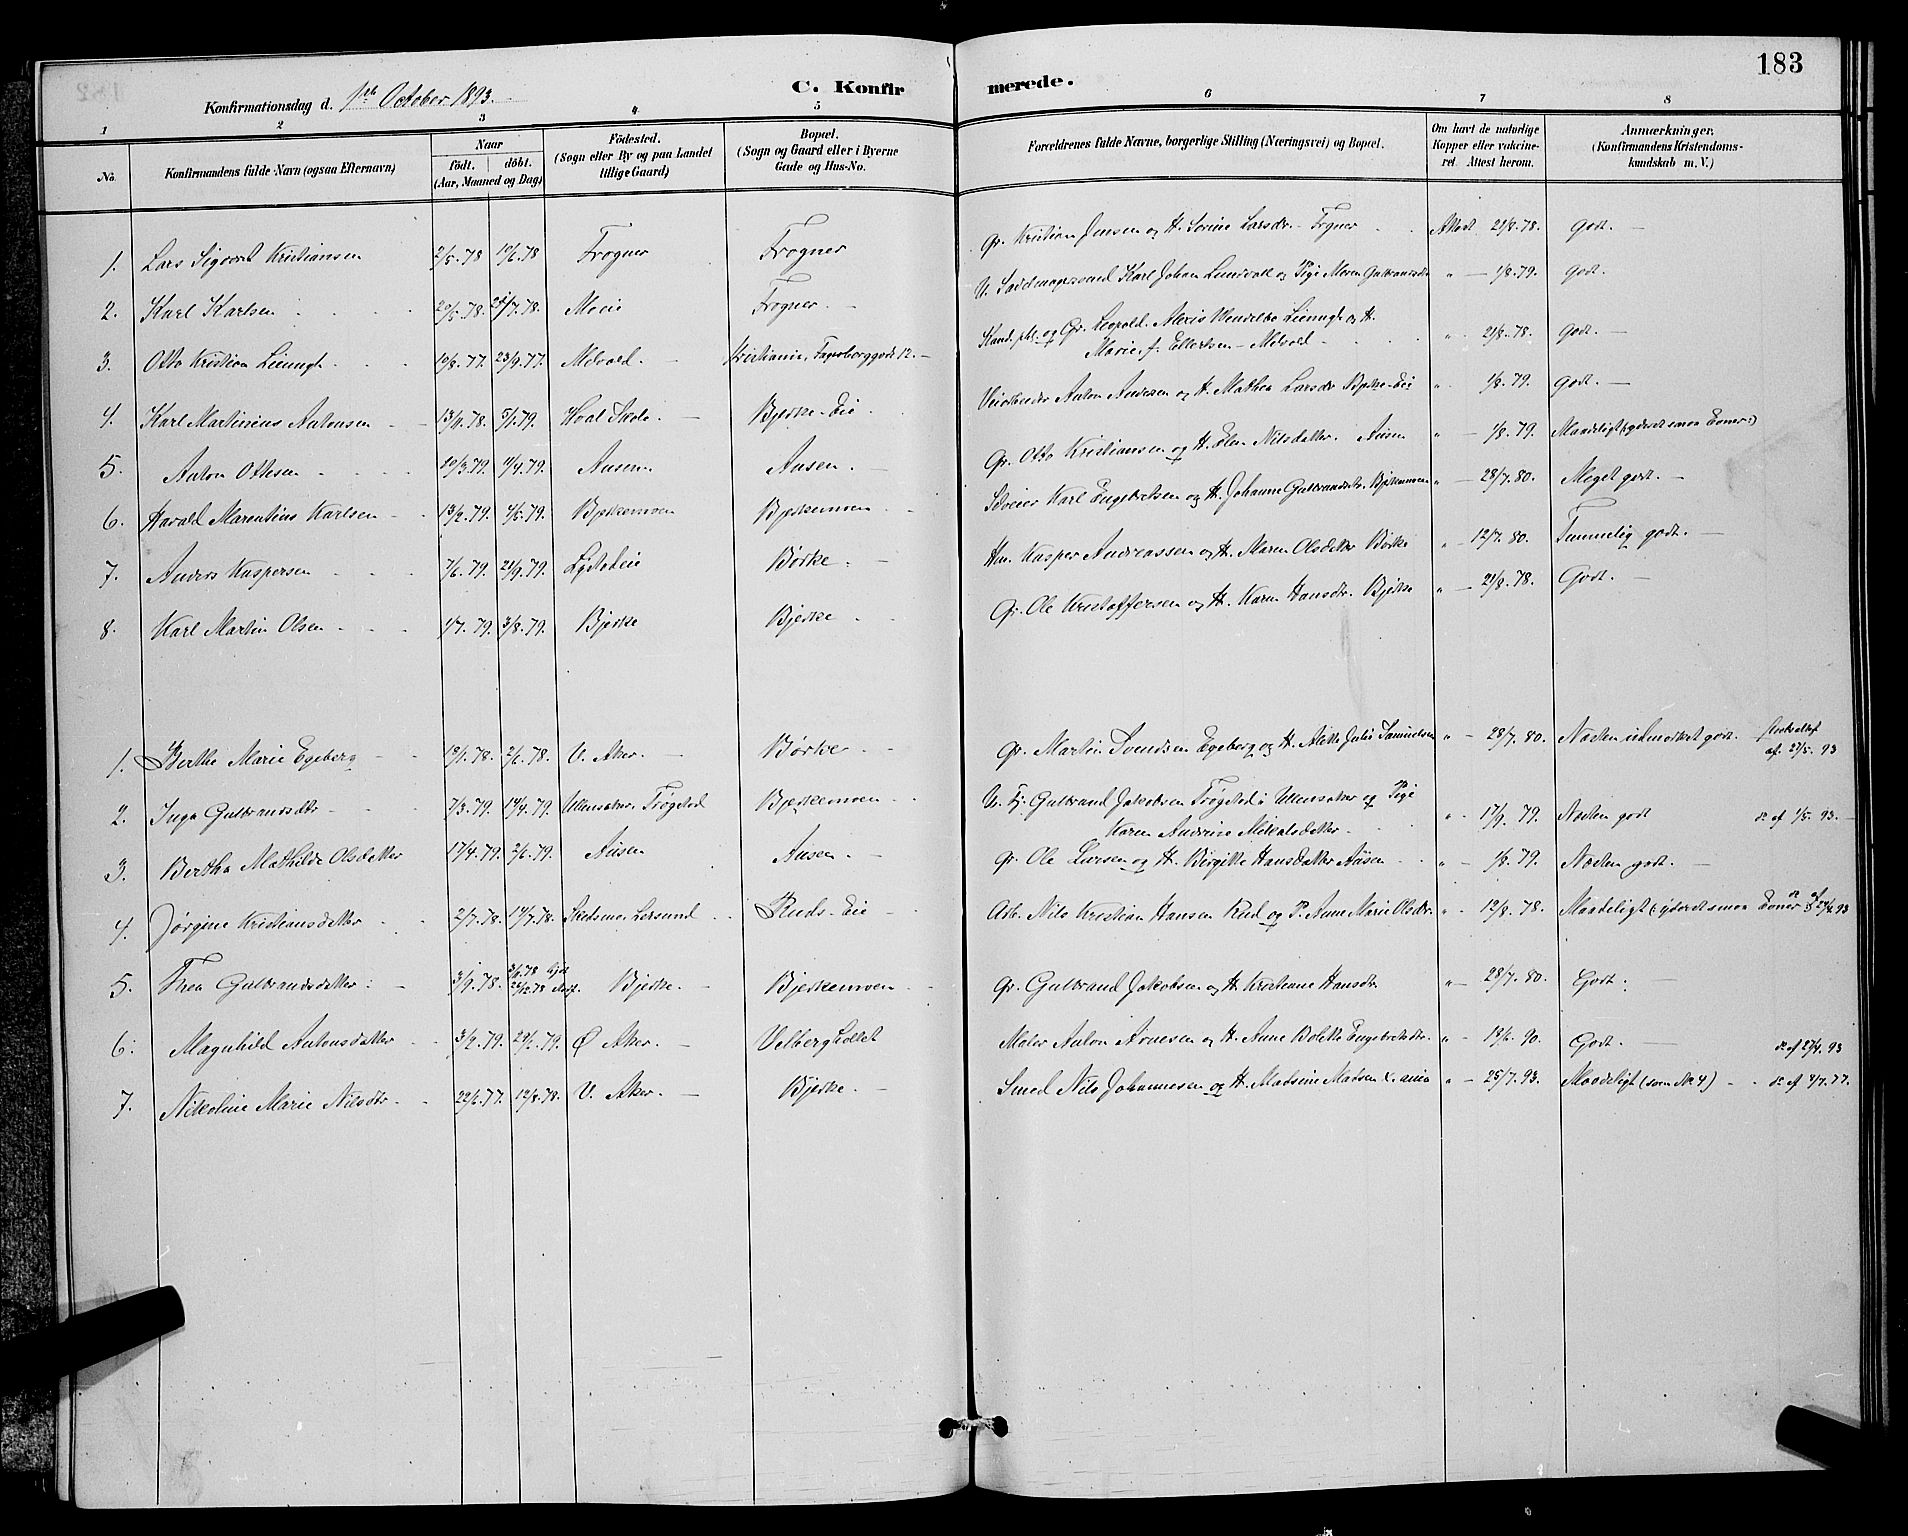 183
Konfirmationsdag d. 1ste October 1893.
C. Konfirmerede.
1 2 3 4 5 6 7 8
No. Konfirmandens fulde Navn (ogsaa Efternavn) Naar födt. döbt. (Aar, Maaned og Dag) Födested. (Sogn eller By og paa Landet tillige Gaard) Bopæl. (Sogn og Gaard eller i Byerne Gade og Hus-No. Forældrenes fulde Navne, borgerlige Stilling (Næringsvei) og Bopæl. Om havt de naturlige Kopper eller vaccineret. Attest herom. Anmærkninger. (Konfirmandens Kristendomskundskab m. V.)
1. Lars Sigvart Kristiansen 2/5.78 10/6.78 Frogner Frogner Gr. Kristian Jensen og H. Sorine Larsdr. Frogner Attest 21/8.78. Godt. —
2. Karl Karlsen 20/5.78. 28/7.78. Moeie Frogner. — U. Sadelmagersvend Karl Johan Lundvall og Pige Maren Gulbrandsdtr " — 1/8.79. Godt.
3. Otto Kristian Lienugh 19/8.77. 23/9.77. Melvold. — Kristiania, Fagerborggade 12. — Kand. phil. og Gr. Leopold Alexis Wendelbo Lienugh og H.
Marie f. Ellertsen — Melvold " 21/8.78. Godt.
4. Karl Martinius Antonsen 13/11.78. 5/1.79. Hval Skole — Bjerke-Eie. Veiarbeider Anton Andersen og H. Mathea Larsdr. Bjerke-Eie " 1/8.79. Godt. —
5. Anton Ottesen 10/3.79. 11/4.79. Ausen. Ausen. — Gr. Otto Kristiansen og H. Elen Nilsdatter. Ausen " — 1/8.79. Maadeligt (yderst smaa Evner.)
6. Harald Marentius Karlsen 13/2.79. 4/5.79. Bjerkemoen Bjerkemoen Selveier Karl Engebretsen og H. Johanne Gulbrandsdtr. Bjerkemoen " — 28/7.80. Meget godt. —
7. Anders Kaspersen 7/6.79. 21/9.79. Børke. — Hm. Kasper Andreassen og H. Maren Olsdatter Børke " — 12/7.80. Temmelig godt. —
8. Karl Martin Olsen 1/7.79. 3/8.79. Bjerke Bjerke Gr. Ole Kristoffersen og H. Karen Hansdr. Bjerke " — 21/8.78. Godt. —
1. Berthe Marie Egeberg 19/1.78. 2/6.78. V. Aker. — Børke Gr. Martin Svendsen Egeberg og H. Alette Julie Samuelsen " — 28/7.80. Næsten udmerket godt. af 27/5.93
2. Inga Gulbrandsdtr 7/3.79. 14/4.79. Ullensaker. Trøgstad Bjerkemoen U. Fj. Gulbrand Jakobsen Trøgstad i Ullensaker og Pige
Karen Andrine Mikalsdatter. " — 17/9.79. Næsten godt do af 1/5.93. —
3. Bertha Mathilde Olsdatter 17/4.79. 2/6.79. Ausen Ausen. — Gr. Ole Larsen og H. Birgitte Hansdatter Ausen " — 1/8.79. Næsten godt. —
4. Jørgine Kristiansdatter 2/7.78. 14/7.78. Skedsmo. Lersund Ruds-Eie Arb. Nils Kristian Hansen Rud og P. Anne Marie Olsdtr. " — 12/8.78. Maadeligt (yderst smaa Evner
5. Thea Gulbrandsdatter 3/9.78. Bjerke. — Bjerkemoen Gr. Gulbrand Jakobsen og H. Kristiane Hansdtr " — 28/7.80. Godt. —
6. Magnhild Antonsdatter 3/2.79. 29/2.79. Ø Aker. — Velbergholtet Maler Anton Arnesen og H. Anne Bolette Engebretsdtr. " — 13/6.90. Godt. — do af 27/4.93
7. Nikoline Marie Nilsdtr. 22/6.77. 12/8.78. V. Aker. — Bjerke. — Smed Nils Johannesen og H. Madsine Madsen " — 25/7.93. Maadeligt (som No 4) do af 4/7.77.